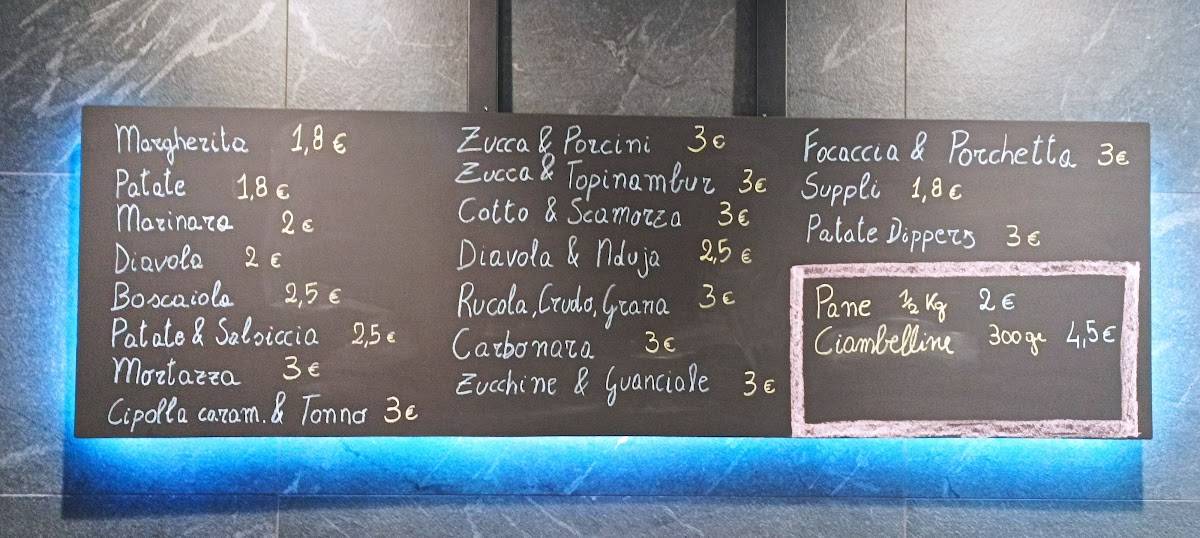 Margherita 1,8 €
Patate 1,8 €
Marinara 2 €
Diavola 2 €
Boscaiola 2,5 €
Patate & Salsiccia 2,5 €
Mortazza 3 €
Cipolla caram. & Tonno 3 €
Zucca & Porcini 3 €
Zucca & Topinambur 3 €
Cotto & Scamorza 3 €
Diavola & Nduja 2,5 €
Rucola, Crudo, Grana 3 €
Carbonara 3 €
Zucchine & Guanciale 3 €
Focaccia & Porchetta 3 €
Supplì 1,8 €
Patate Dippers 3 €
Pane ½ Kg 2 €
Ciambelline 300 gr 4,5 €